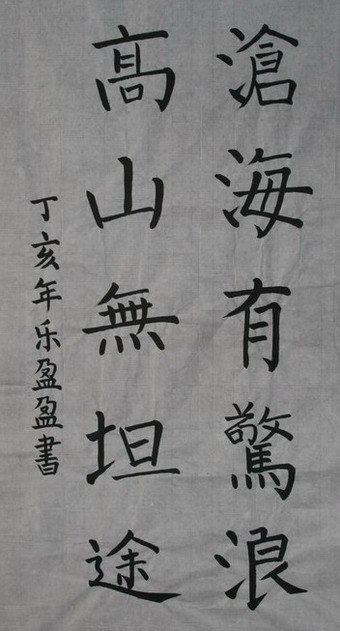 滄海有驚浪
高山無坦途
丁亥年乐盈盈書